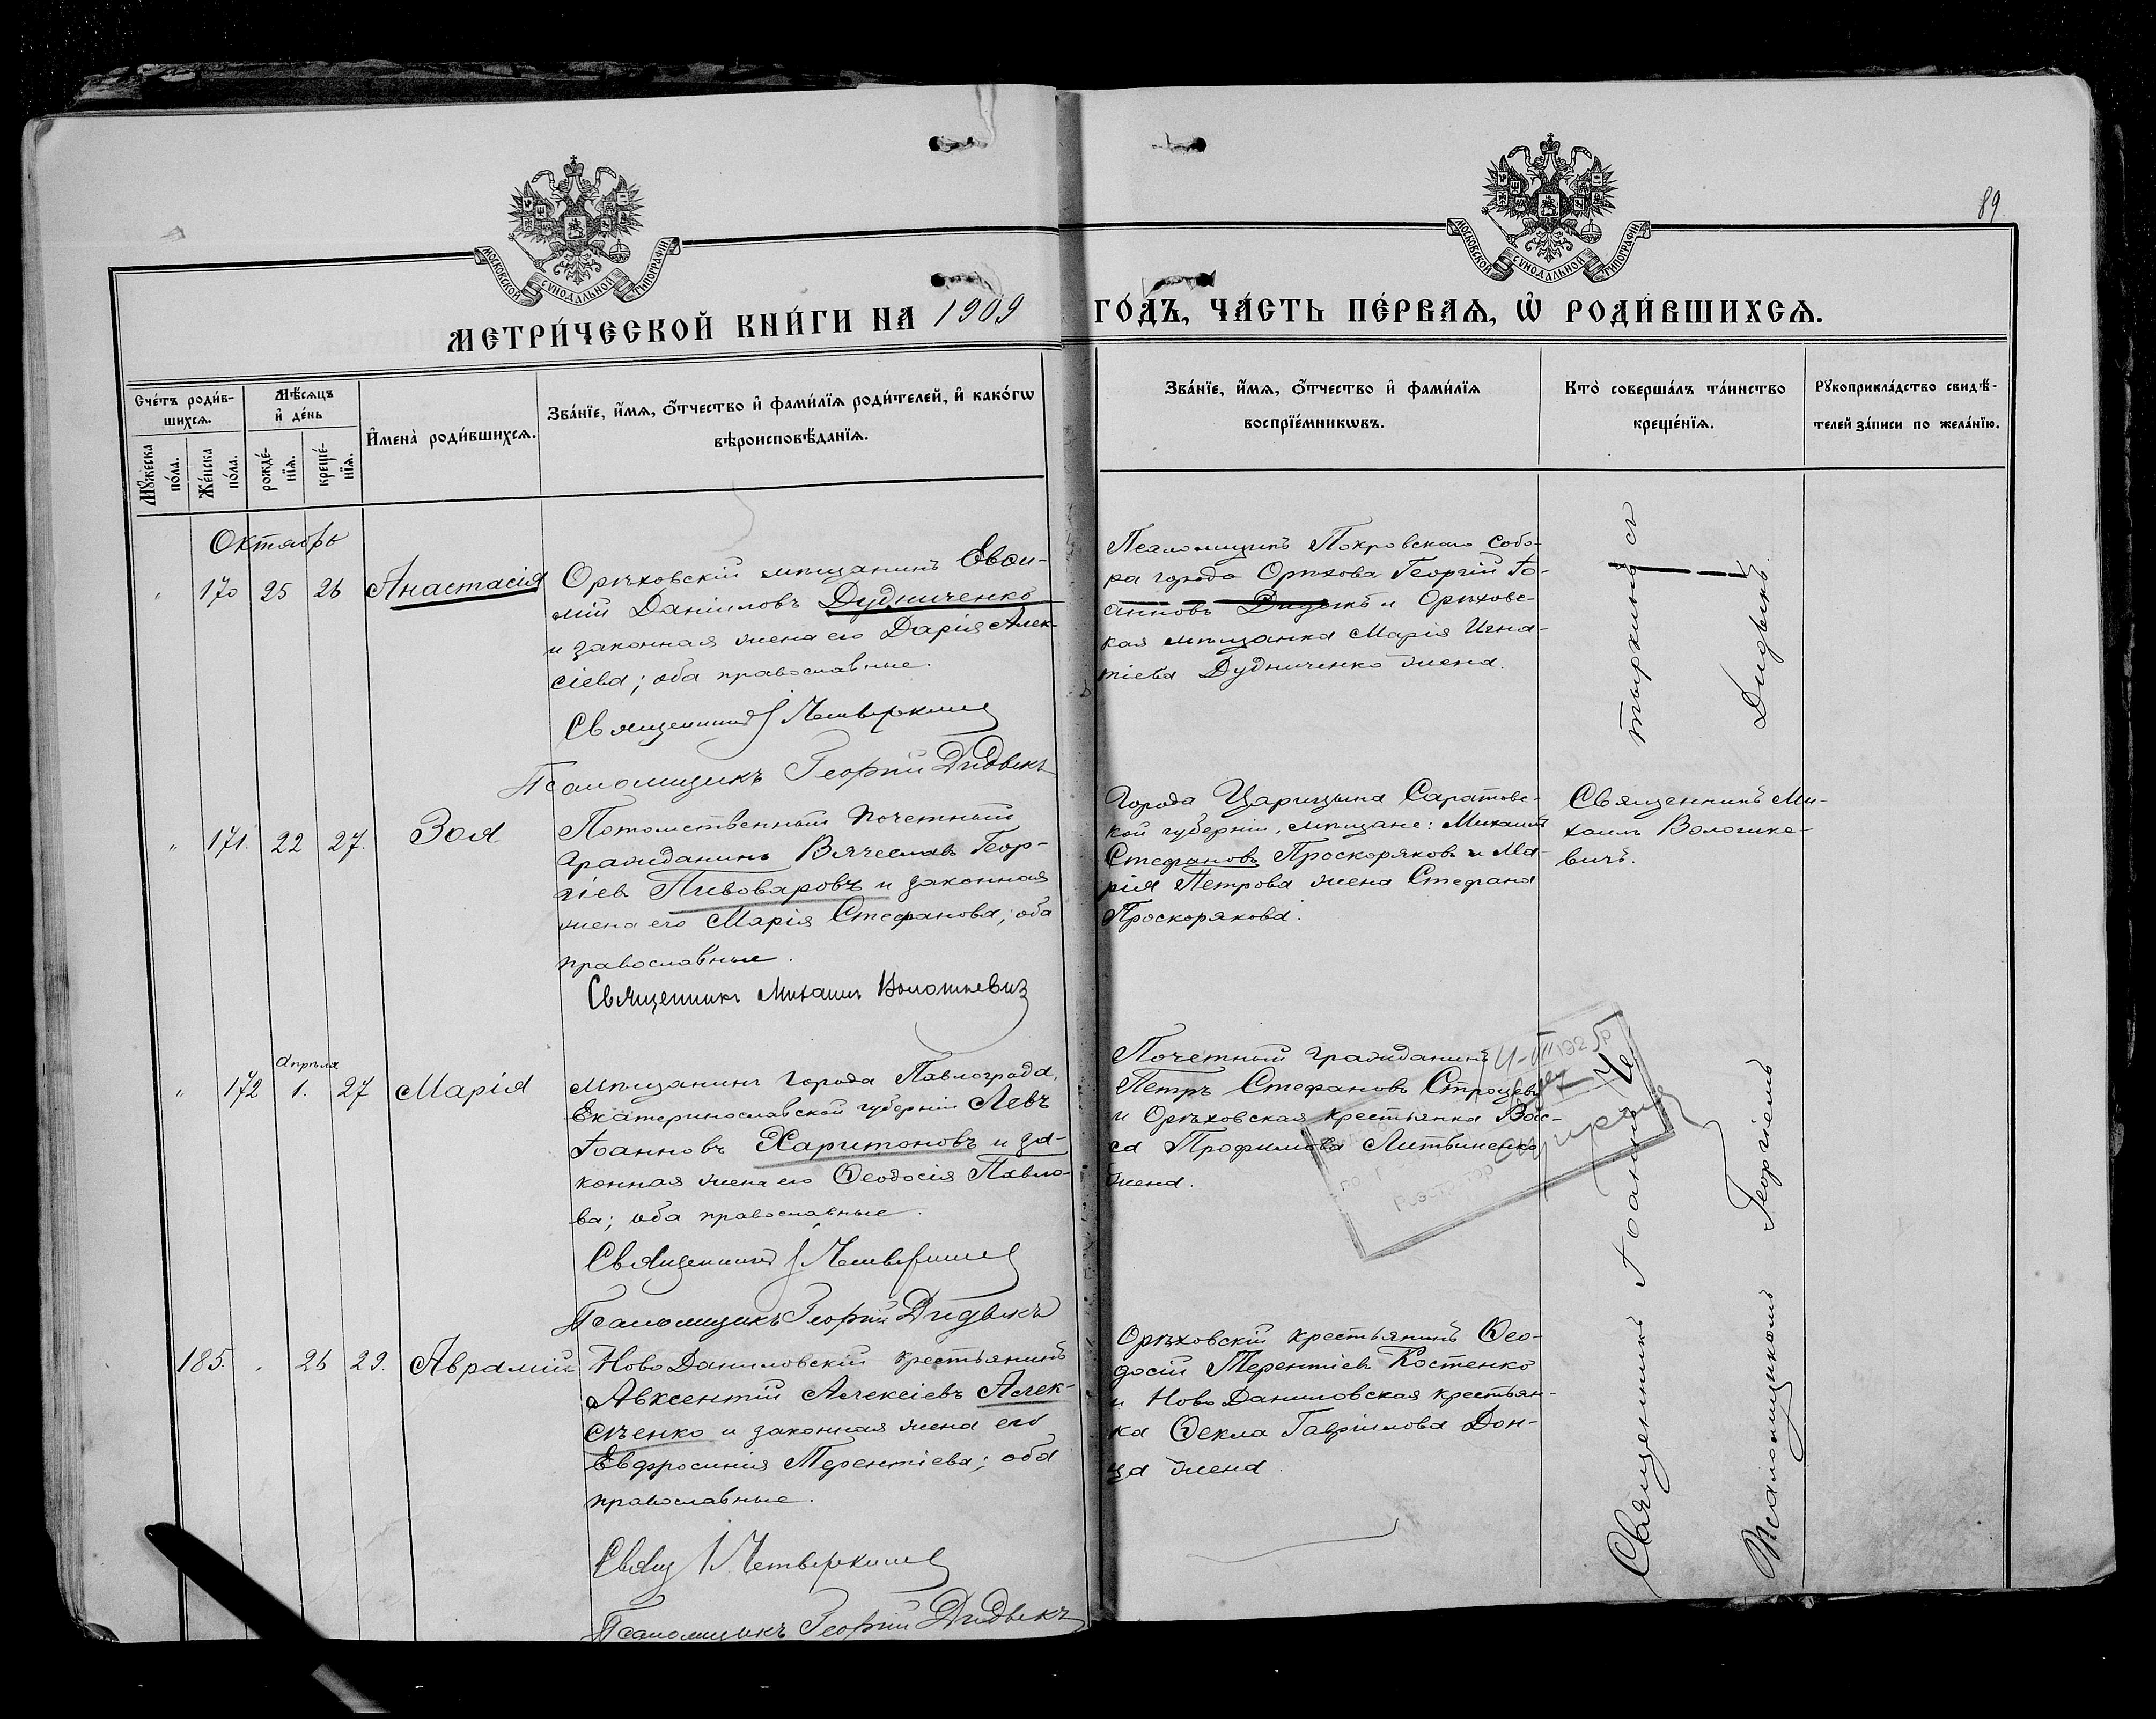 89.
МОСКОВСКОЙ СѴНОДАЛЬНОЙ ТИПОГРАФІИ
МОСКОВСКОЙ СѴНОДАЛЬНОЙ ТИПОГРАФІИ
МЕТРИ́ЧЕСКОЙ КНИ́ГИ НА 1909 ГО́ДЪ, ЧА́СТЬ ПЕ́РВАѦ, Ѡ҆ РОДИ́ВШИХСѦ.
Сче́тъ роди́в-
шихсѧ.
Мꙋ́жеска по́ла.
Же́нска по́ла.
Мѣ́сѧцъ
и҆ де́нь
рожде́-
нїѧ.
креще́-
нїѧ.
И҆мена̀ роди́вшихсѧ.
Зва́нїе, и҆́мѧ, ѻ҆́тчество и҆ фами́лїѧ роди́телей, и҆ како́гѡ
вѣроисповѣ́данїѧ.
Зва́нїе, и҆́мѧ, ѻ҆́тчество и҆ фами́лїѧ
воспрїе́мникѡвъ.
Кто̀ соверша́лъ та́инство
креще́нїѧ.
Рꙋкоприкла́дство свидѣ́-
телей за́писи по жела́нїю.
Октябрь
" 170 25 26 Анастасія
Орѣховскій мѣщанинъ Евѳи-
мій Даніиловъ Дудниченко
и законная жена его Дарія Алек-
сіева; оба православные.
Священникъ І Четверкинъ
Псаломщикъ Георгій Дидыкъ
Псаломщикъ Покровскаго Собо-
ра города Орѣхова Георгій Іо-
анновъ Дидыкъ и Орѣховс-
кая мѣщанка Марія Игна-
тіева Дудниченко жена.
" 171. 22 27. Зоя
Потомственный почетный
гражданинъ Вячеславъ Геор-
гіев Пивоваровъ и законная
жена его Марія Стефанова; оба
православные.
Священникъ Михаилъ Волошкевич
Города Царицына Саратовс-
кой губерніи, мѣщане: Михаилъ
Стефановъ Проскоряковъ и Ма-
рія Петрова жена Стефана
Проскорякова.
Священникъ Ми-
хаилъ Волошке-
вичъ.
" 172 Апрѣля 1. 27 Марія
Мѣщанинъ города Павлограда,
Екатеринославской губерніи Левъ
Іоанновъ Харитоновъ и за-
конная жена его Ѳеодосія Павло-
ва; оба православные.
Священникъ І Четверкинъ
Псаломщикъ Георгій Дидыкъ
Почетный гражданинъ
Петръ Стефановъ Строцевъ
и Орѣховская крестьянка Вас-
са Трофимова Литвиненко
жена.
185. " 26 29. Аврамій
Ново Даниловскій крестьянинъ
Авксентій Алексіевъ Алек-
сѣенко и законная жена его
Евфросинія Терентіева; оба
православные.
Свящ І Четверкинъ
Псаломщикъ Георгій Дидыкъ
Орѣховскій крестьянинъ Ѳео-
досій Терентіевъ Костенко
и Ново Даниловская крестьян-
ка Ѳекла Гавріилова Дон-
ца жена.
Священникъ Іоаннъ Че-
тыркинъ съ
Псаломщикомъ Георгіемъ
Дидыкъ.